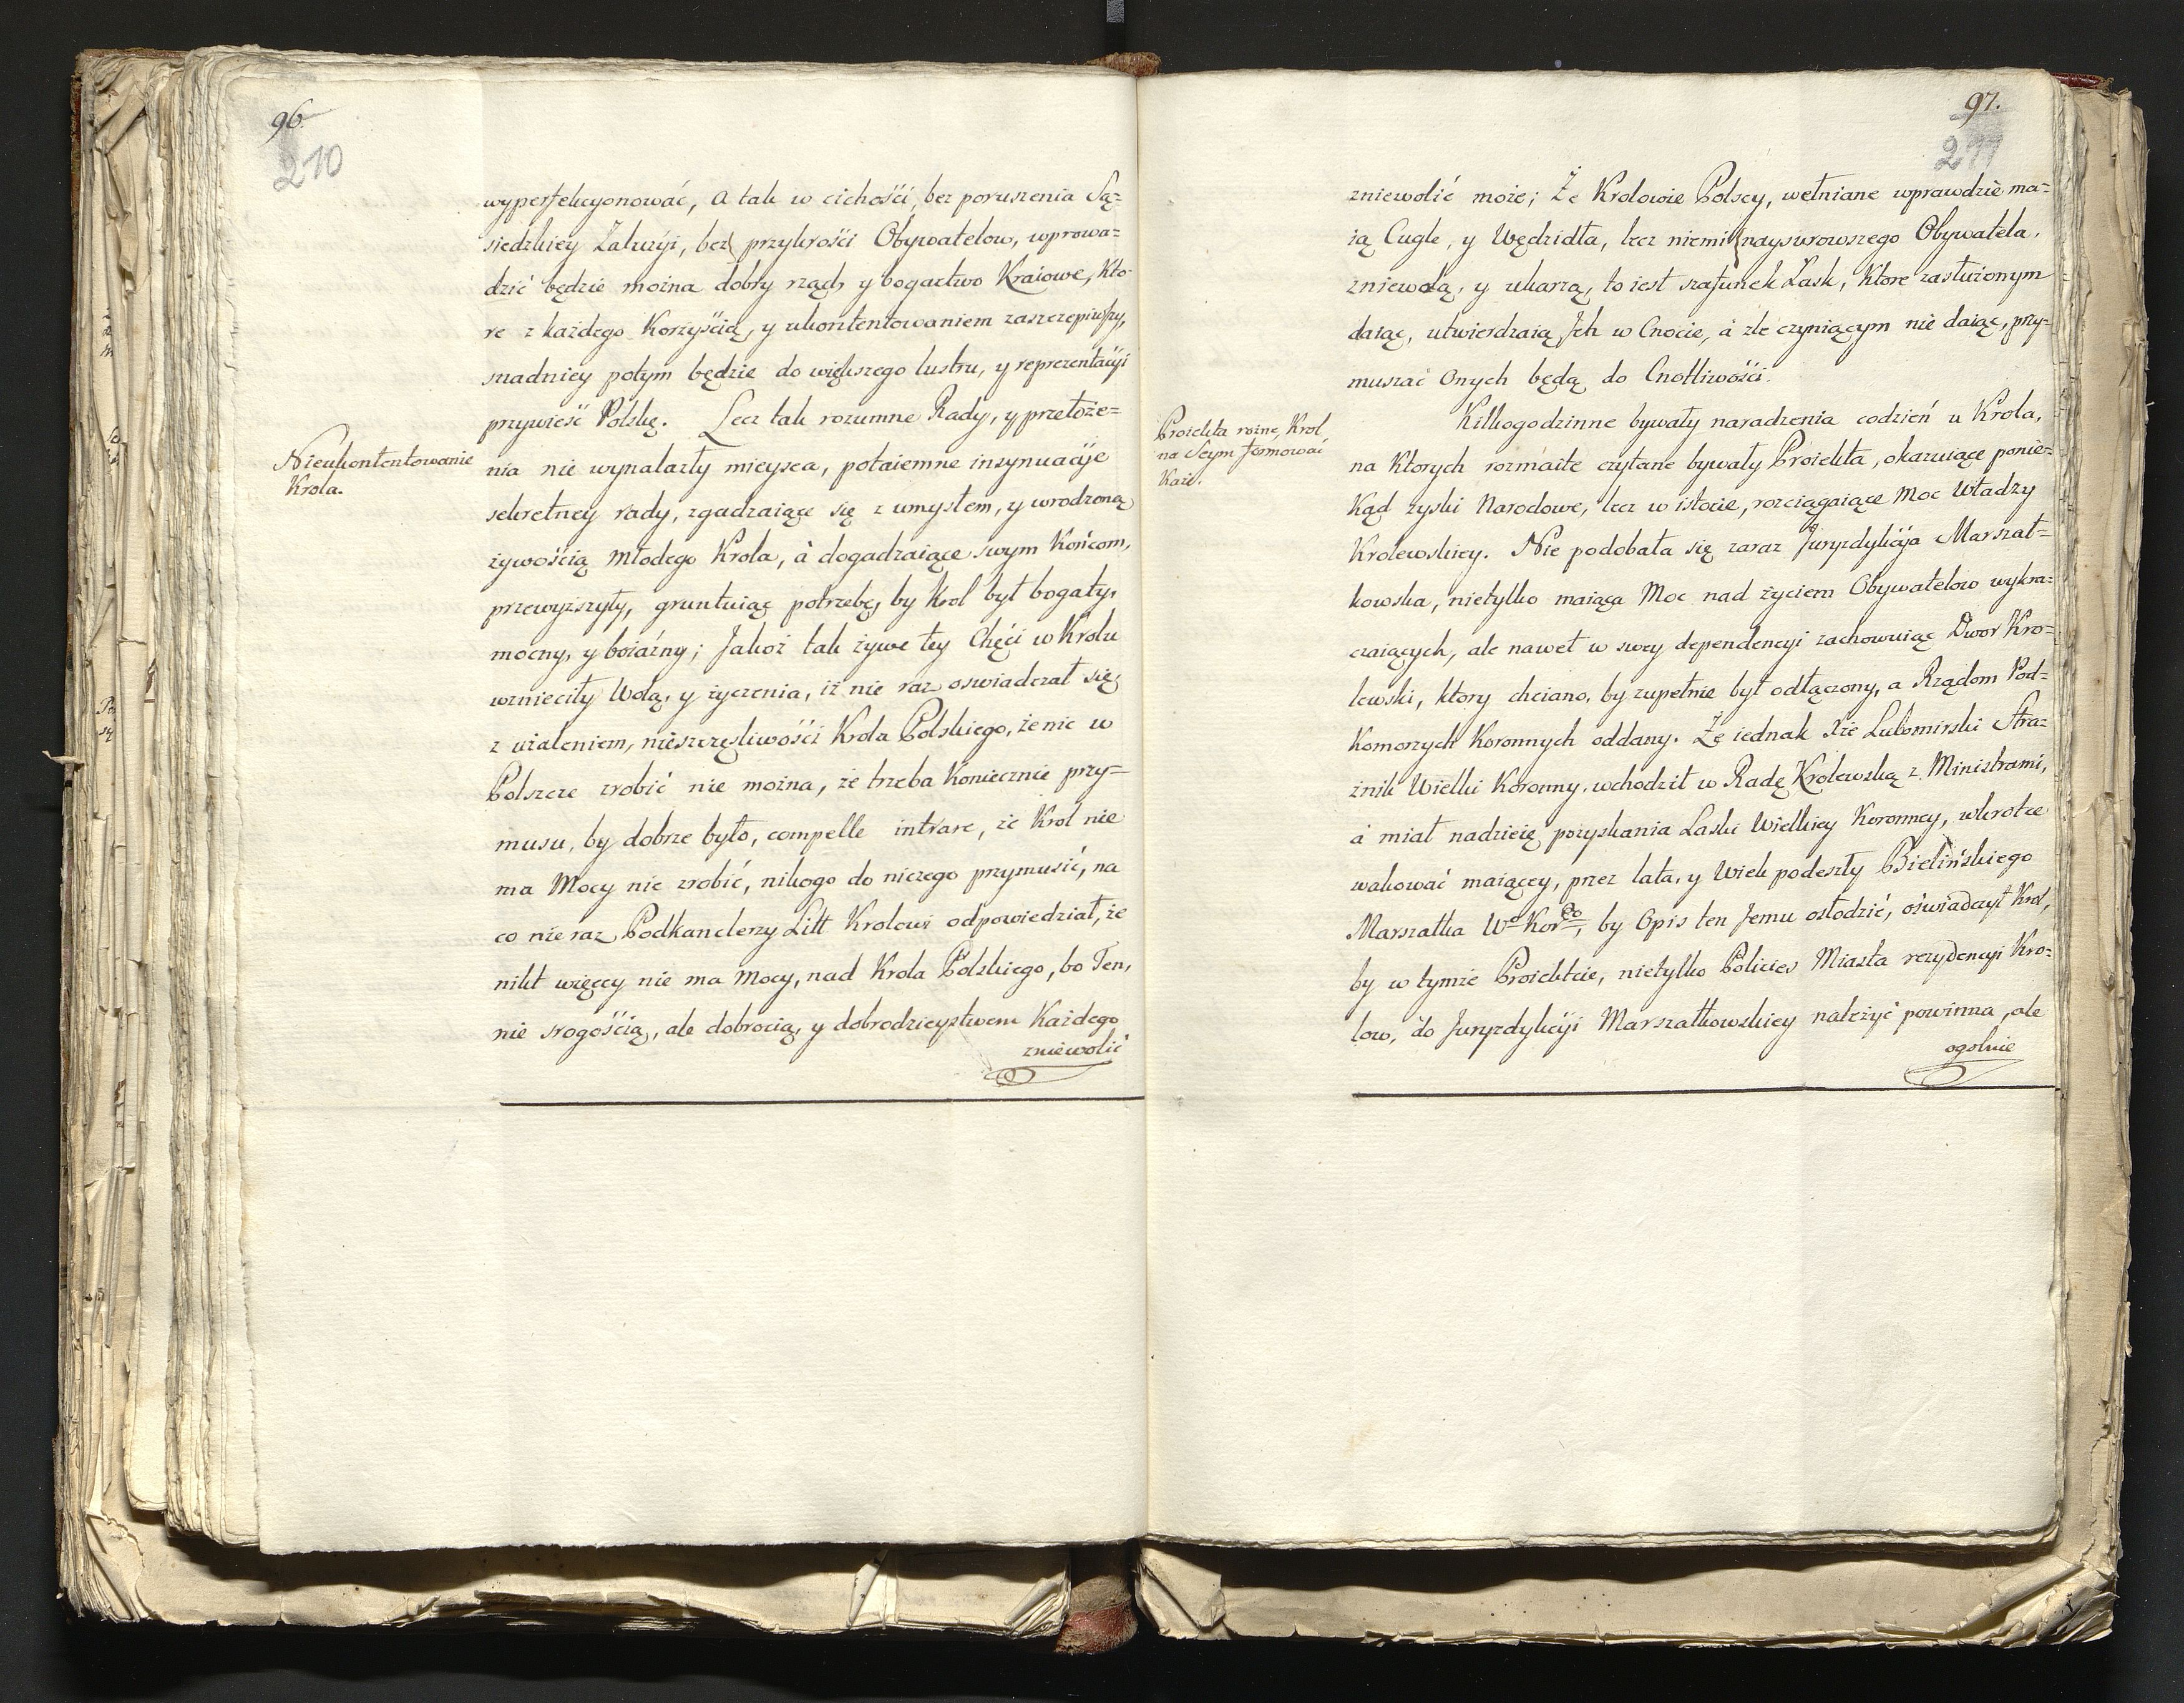 96.
210
wyperfekcyonować, a tak w cichości, bez poruszenia Są=
siedzkiey Zaluzyi, bez przykrości Obywatelow, wprowa=
dzić będzie można dobry rząd, y bogactwo Kraiowe, Kto=
re z każdego Korzyścią, y ukontentowaniem zaszczepiwszy,
snadniey potym będzie do większego lustru, y reprezentacyi
przywieść Polskę. Lecz tak rozumne Rady, y przełoże=
Nieukontentowanie
Krola.
nia nie wynalazły mieysca, potaiemne insynuacÿe
sekretney rady, zgadzaiące się z umysłem, y wrodzoną
żywością młodego Krola, à dogadzaiące swym Końcom,
przewyższyły, gruntuiąc potrzebę, by Krol był bogaty,
mocny, y boiaźny; Jakoż tak żywe tey Chęci w Krolu
wznieciły Wolą, y życzenia, iż nie raz oswiadczał się,
z użaleniem, nieszczęsliwości Krola Polskiego, że nic w
Polszcze zrobić nie można, że trzeba Koniecznie przy=
musu, by dobrze było, compelle intrare, że Krol nie
ma Mocy nic zrobić, nikogo do niczego przymusić, na
co nie raz Podkanclerzy Litt Krolowi odpowiedział, że
nikt więcey nie ma Mocy, nad Krola Polskiego, bo Ten,
nie srogością, ale dobrocią, y dobrodzieystwem Każdego
zniewolić
97.
211
zniewolić może; Że Krolowie Polscy, wełniane wprawdzie ma=
ią Cugle, y Wędzidła, lecz niemi naysurowszego Obywatela,
zniewolą, y ukarzą, to iest szafunek Łask, Ktore zasłużonym
daiąc, utwierdzaią Ich w Cnocie, à zle czyniącym nie daiąc, przy=
muszać Onych będą do Cnotliwości.
Proiekta rożne, Krol
na Seym formować
Każe.
Kilkogodzinne bywały naradzenia codzień u Krola,
na Ktorych rozmaite czytane bywały Proiekta, okazuiące ponie=
kąd zyski Narodowe, lecz w istocie, rozciągaiące Moc Władzy
Krolewskiey. Nie podobała się zaraz Juryzdykcÿa Marszał=
kowska, nietylko maiąca Moc nad życiem Obywatelow wykra=
czaiących, ale nawet w swey dependencyi zachowuiąc Dwor Kro=
lewski, ktory chciano, by zupełnie był odłączony, a Rządom Pod=
Komorzych Koronnych oddany. Że iednak Xże Lubomirski Stra=
żnik Wielki Koronny, wchodził w Radę Krolewską z Ministrami,
à miał nadzieię pozyskania Laski Wielkiey Koronney, wkrotce
wakować maiącey, przez lata, y Wiek podeszły Bielińskiego
Marszałka Wo Korgo, by Opis ten Jemu osłodzić, oświadczył Krol,
by w tymże Proiekcie, nietylko Policies Miasta rezydencyi Kro=
low, do Juryzdykcÿi Marszałkowskiey należyć powinna, ale
ogolnie